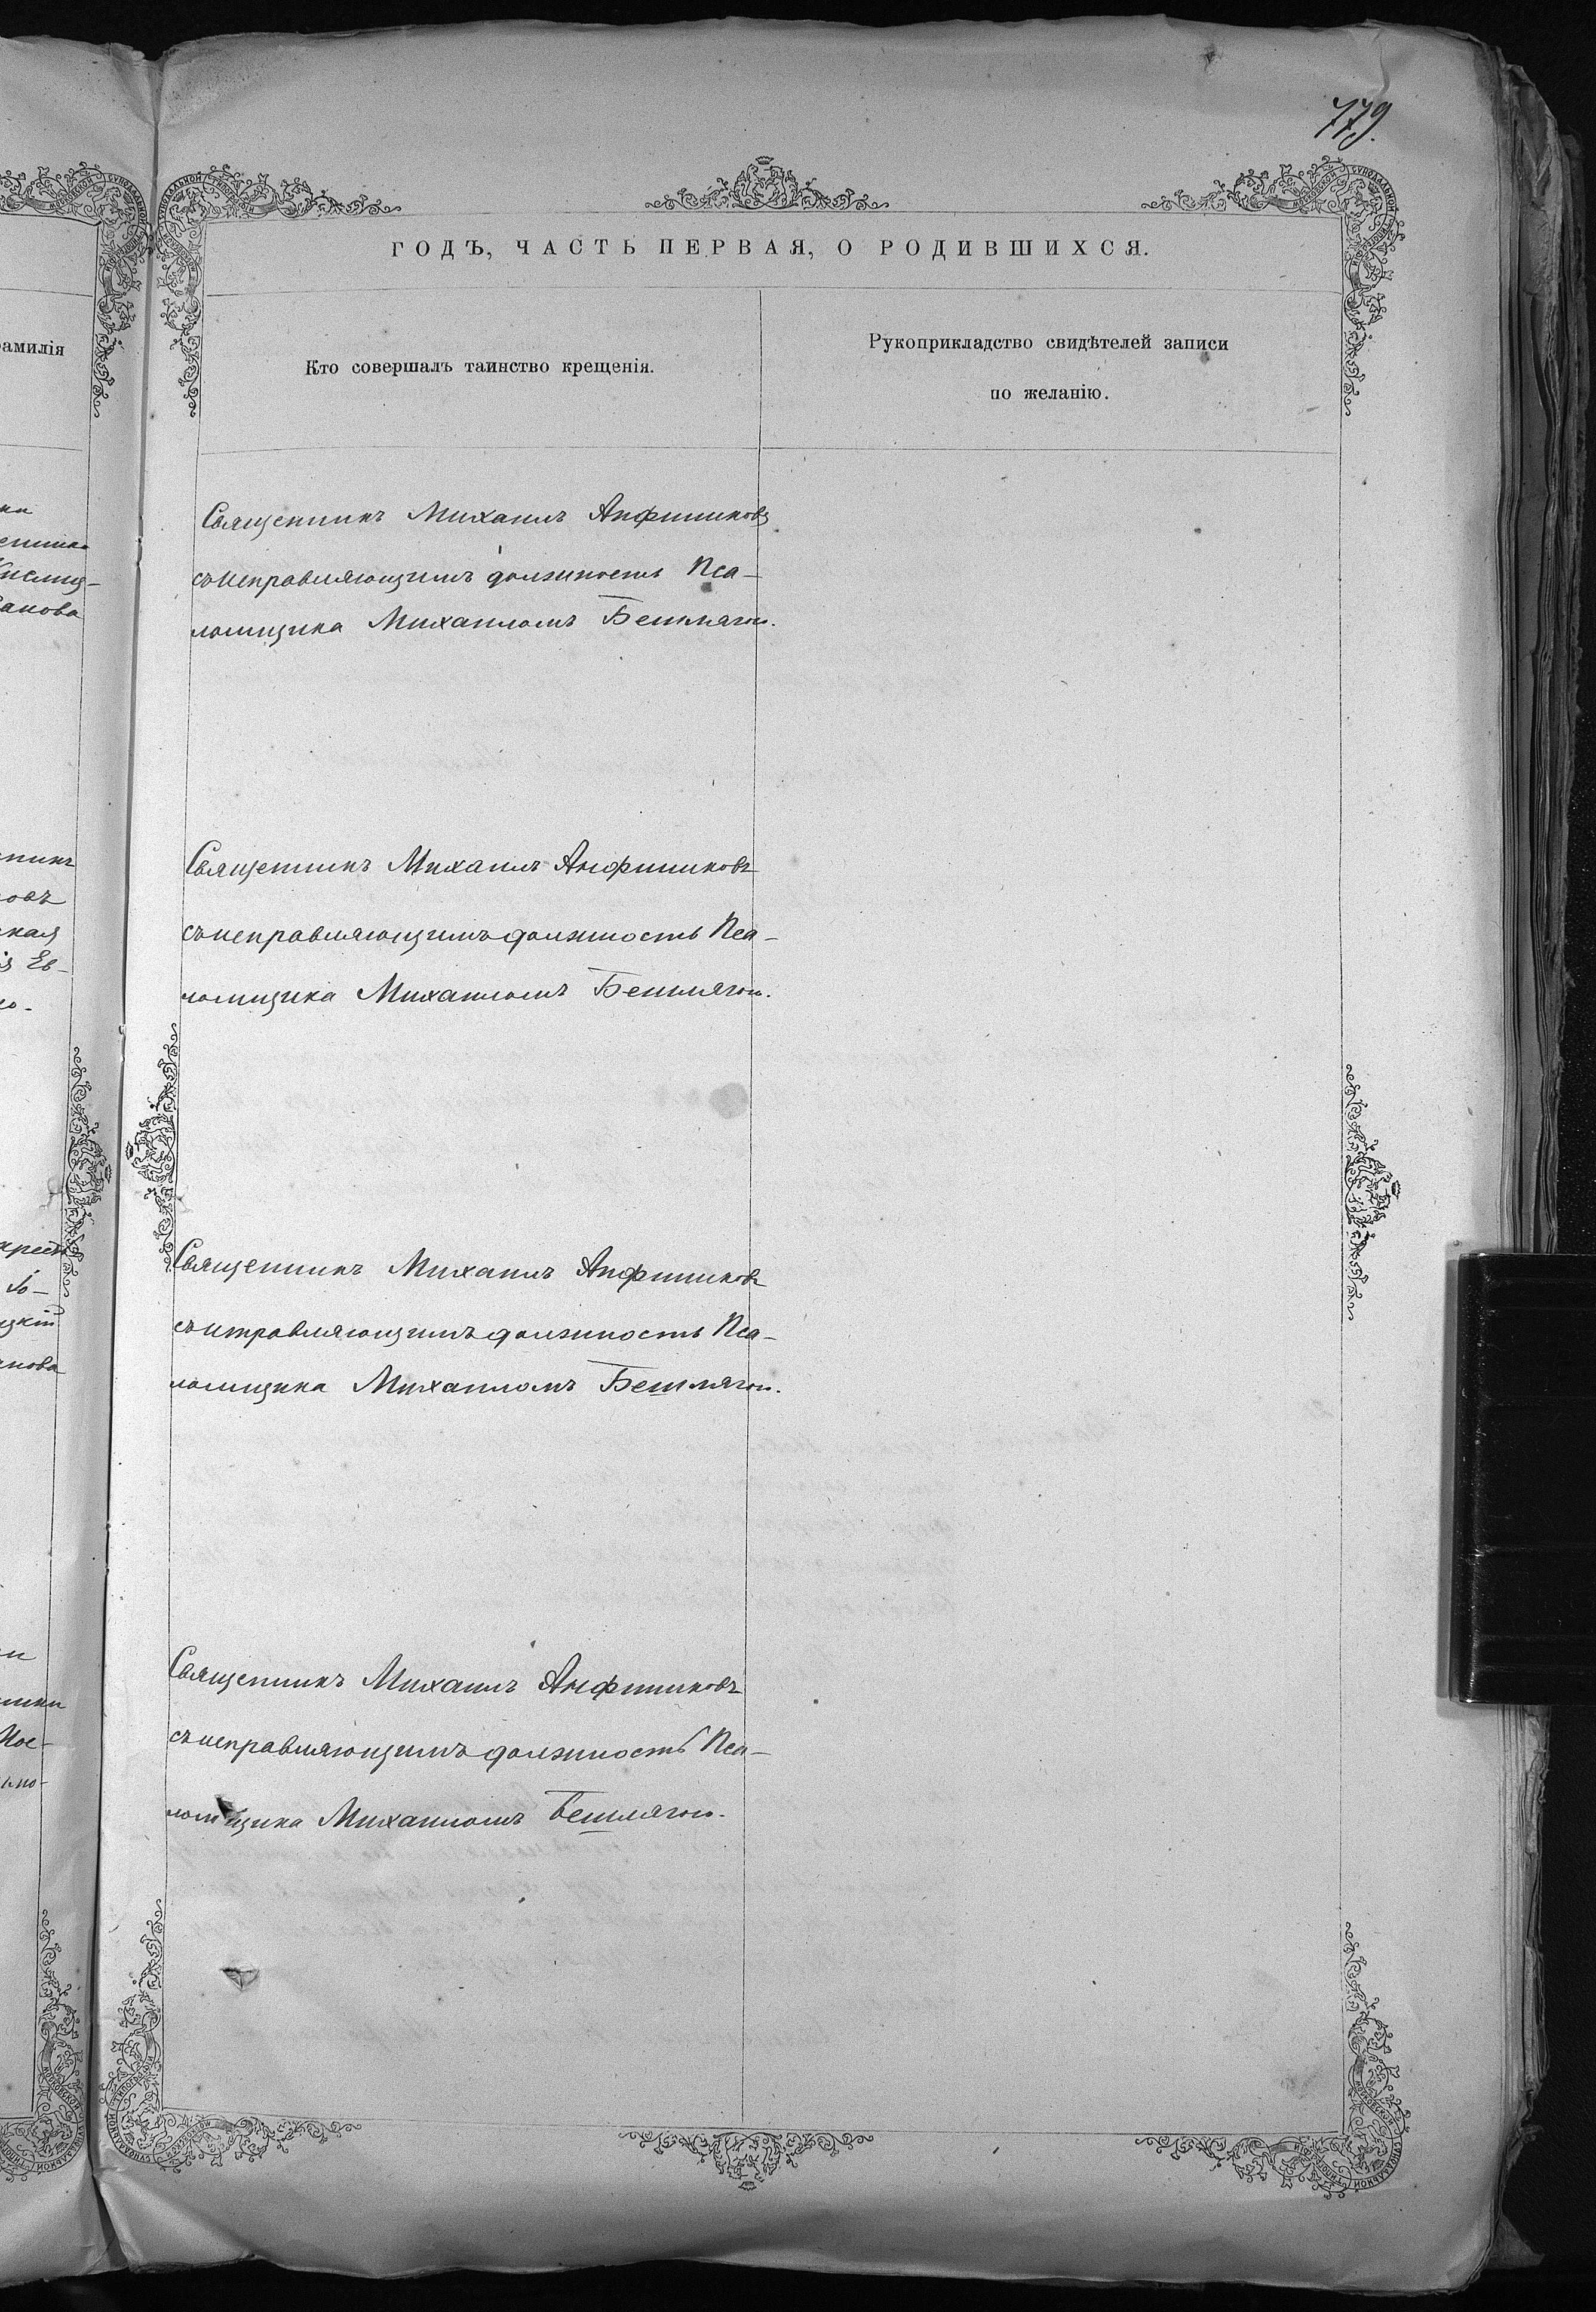 779.
ГОДЪ, ЧАСТЬ ПЕРВАЯ, О РОДИВШИХСЯ.
амилія
Кто совершалъ таинство крещенія.
Рукоприкладство свидѣтелей записи
по желанію.
Священникъ Михаилъ Анфиниковъ
съ исправляющимъ должность Пса-
ломщика Михаиломъ Бешлягою.
Священникъ Михаилъ Анфиниковъ
съ исправляющимъ должность Пса-
ломщика Михаиломъ Бешлягою.
Священникъ Михаилъ Анфиниковъ
съ исправляющимъ должность Пса-
ломщика Михаиломъ Бешлягою.
Священникъ Михаилъ Анфиниковъ
съ исправляющимъ должность Пса-
ломщика Михаиломъ Бешлягою.